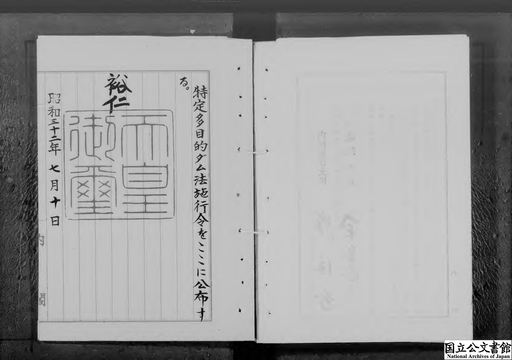 特定多目的ダム法施行令をここに公布す
る。
裕仁
天皇
御璽
昭和三十二年七月十日
内閣
国立公文書館
National Archives of Japan